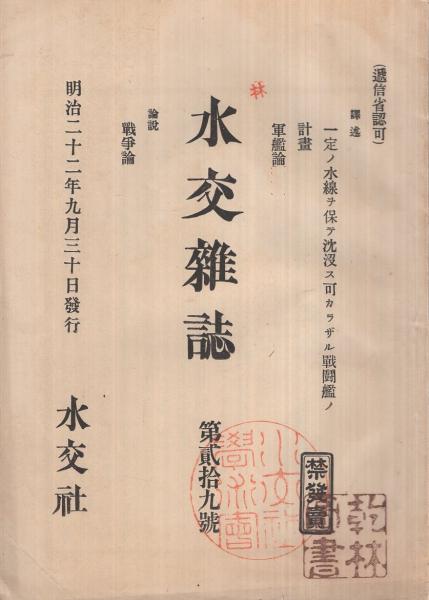 (遞信省認可)
譯述
一定ノ水線ヲ保テ沈沒ス可カラザル戰鬪艦ノ
計畫
軍艦論
林
水交雜誌
第貳拾九號
論說
戰爭論
明治二十二年九月三十日發行
水交社
禁發賣
水交社
學術會